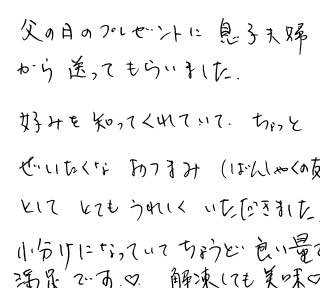 父の日のプレゼントに 息子夫婦
から 送って もらいました.
好みを 知ってくれていて. ちょっと
ぜいたくな おつまみ (ばんしゃくの友
として とても うれしく いただきました
小分けになっていて ちょうど 良い量で
満足 です♡ 解凍しても 美味♡